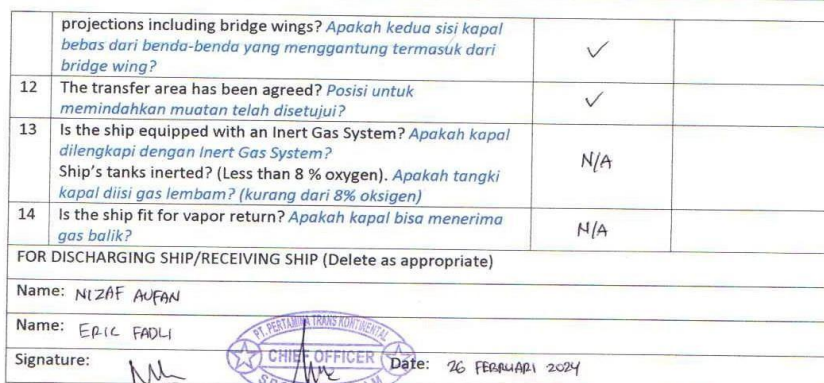 projections including bridge wings? Apakah kedua sisi kapal
bebas dari benda-benda yang menggantung termasuk dari
bridge wing?
✓
12 The transfer area has been agreed? Posisi untuk
memindahkan muatan telah disetujui?
✓
13 Is the ship equipped with an Inert Gas System? Apakah kapal
dilengkapi dengan Inert Gas System?
Ship's tanks inerted? (Less than 8 % oxygen). Apakah tangki
kapal diisi gas lembam? (kurang dari 8% oksigen)
N/A
14 Is the ship fit for vapor return? Apakah kapal bisa menerima
gas balik?
N/A
FOR DISCHARGING SHIP/RECEIVING SHIP (Delete as appropriate)
Name: NIZAF AUFAN
Name: ERIC FADLI
PT. PERTAMINA TRANS KONTINENTAL
CHIEF OFFICER
Signature:
Date: 26 FEBRUARI 2024